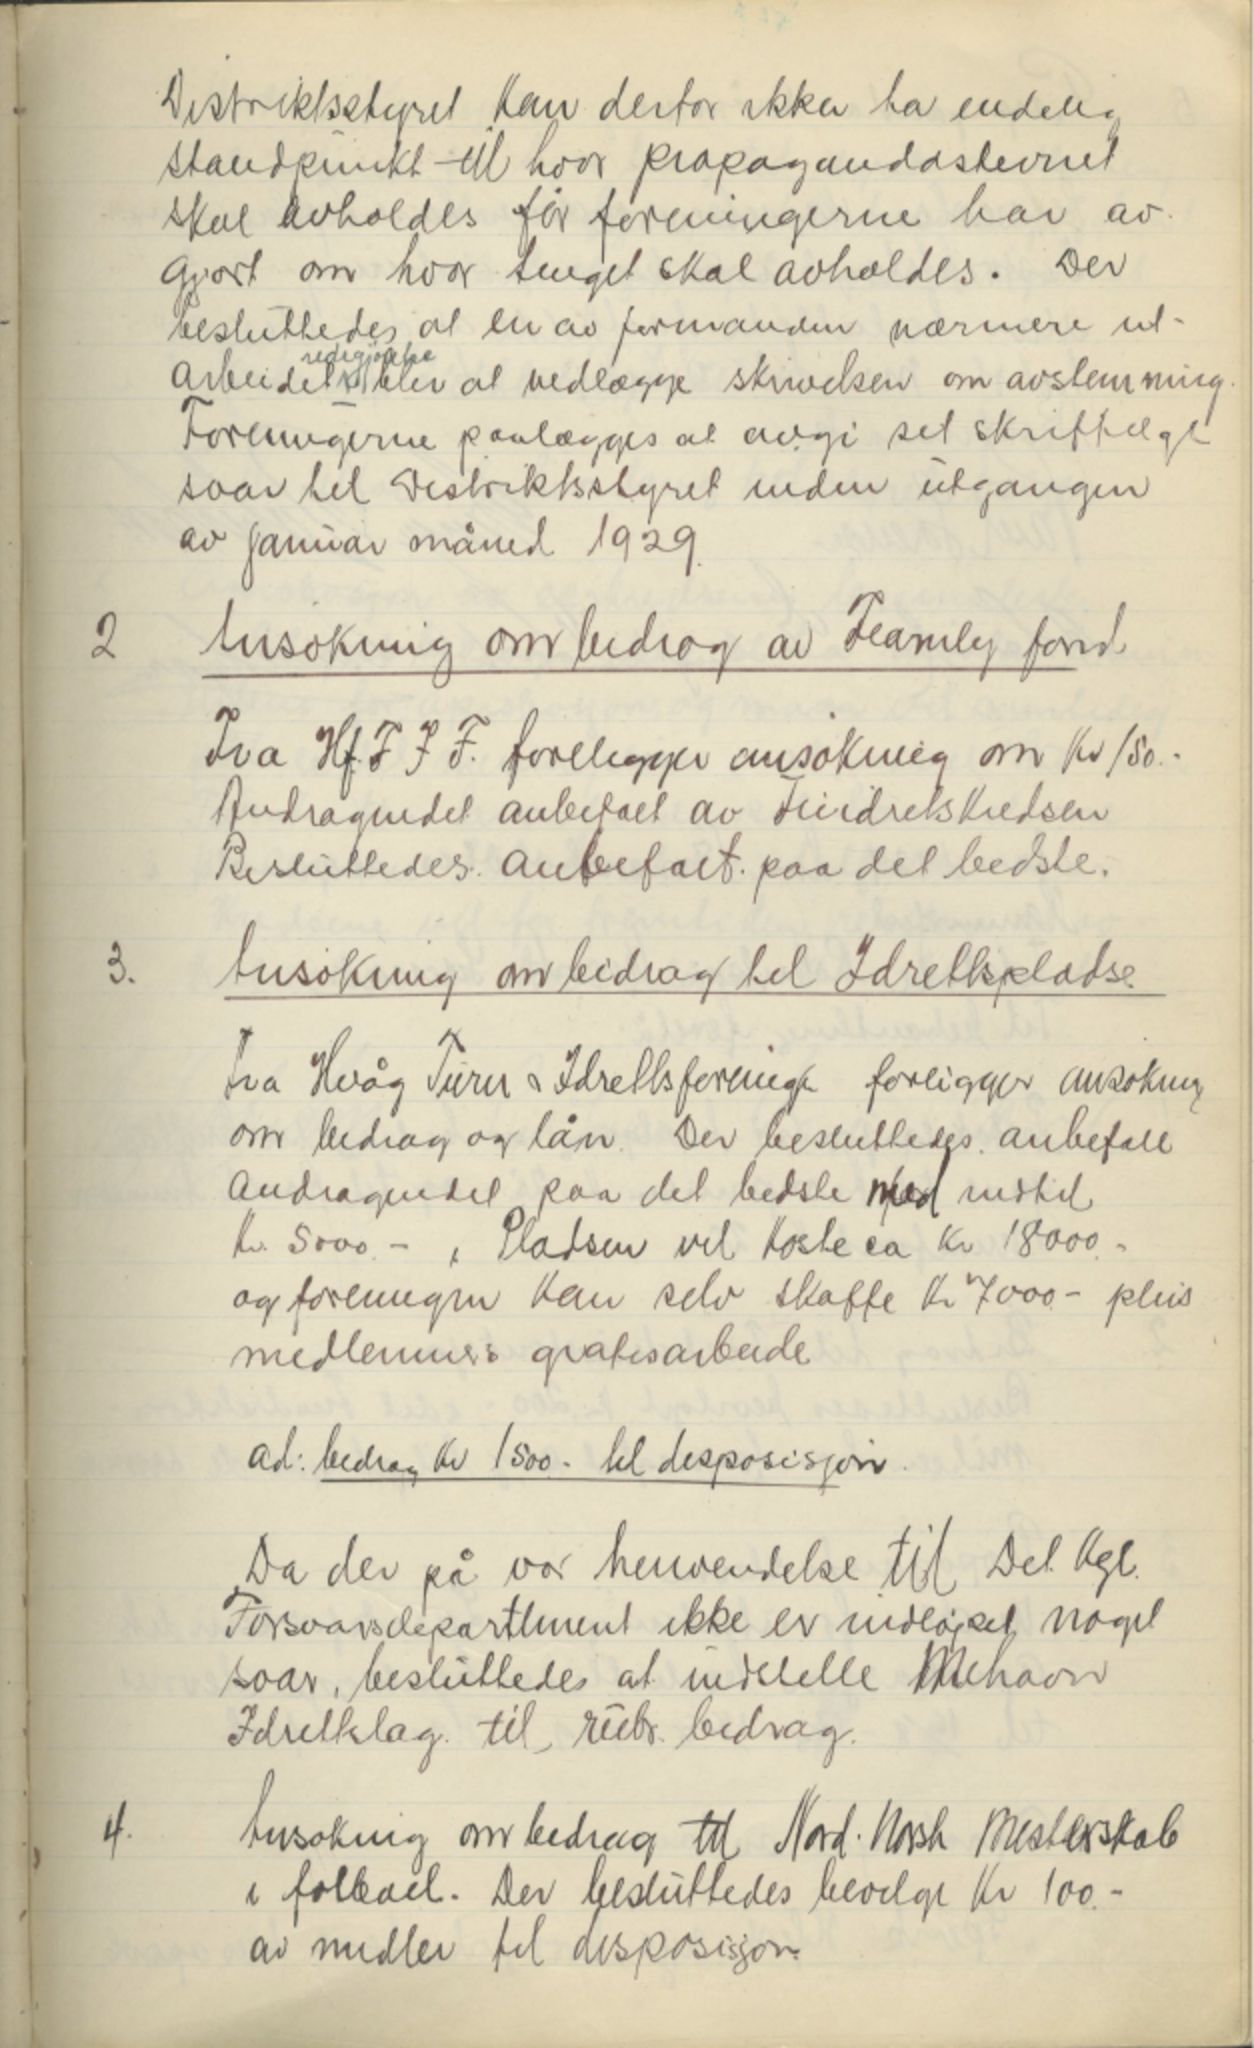 Distriktsstyret kan derfor ikke ta endelig
standpunkt til hvor propagandastevnet
skal avholdes før foreningerne har av-
gjort om hvor tinget skal avholdes. Der
besluttedes at en av formanden nærmere ut-
redegjørelse
arbeidet blev at vedlægge skrivelsen om avstemming.
Foreningerne paalægges at avgi set skriftlege
svar til Distriktsstyret inden utgangen
av januar måned 1929.
2 Ansøkning om bidrag av Fearnley fond
Fra Hf. T I F. foreligger ansøkning om Kr 150.-
Andragendet anbefalt av Friidretskredsen
Besluttedes. anbefalt. paa det bedste.
3. Ansøkning om bidrag til Idrettsplads.
Fra Hvåg Turn & Idrettsforening foreligger ansøkning
om bidrag og lån. Der besluttedes. anbefale
andragendet paa det bedste med indtil
Kr. 5000.- , Pladsen vil koste ca Kr 18000.-
og foreningen kan selv skaffe Kr 7000.- plus
medlemmers gratisarbeide
ad: bidrag Kr 1500.- til disposisjon.
Da der på vor henvendelse til Det Kgl.
Forsvarsdepartement ikke er indløpet noget
svar, besluttedes at indstille Mehavn
Idrettslag. til rubr. bidrag.
4. Ansøkning om bidrag til Nord-Norsk Mesterskab
i fotball. Der besluttedes bevilge Kr 100.-
av midler til disposisjon.